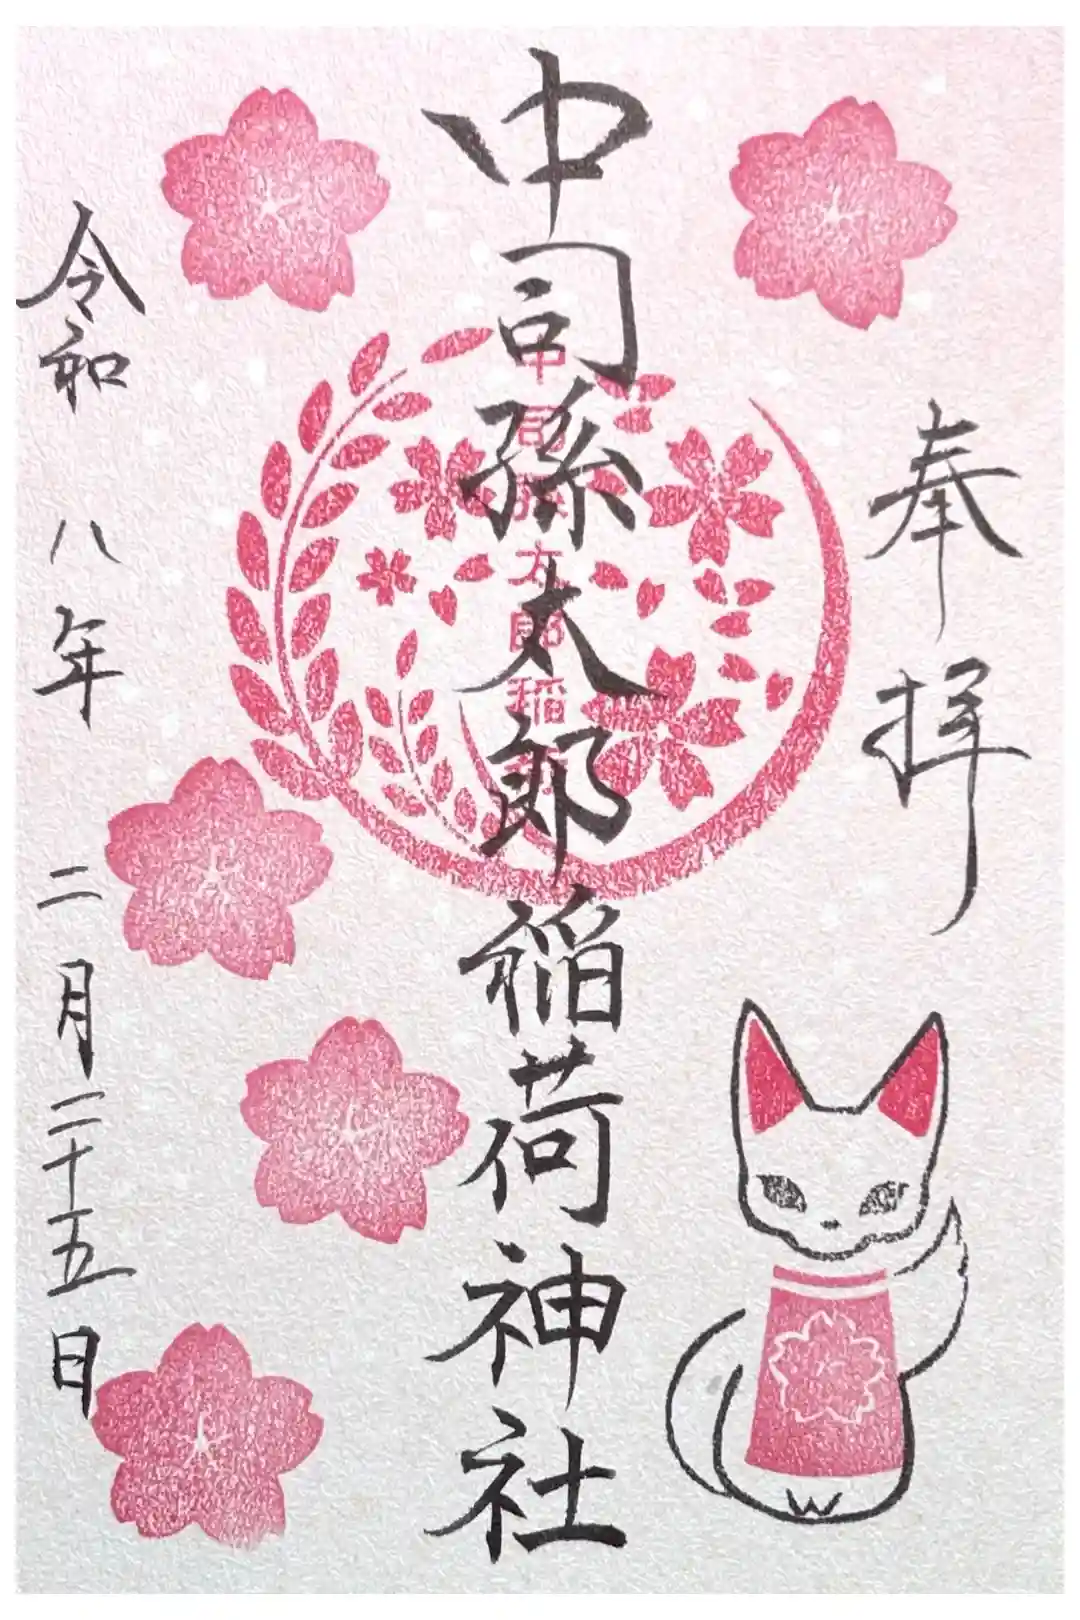 奉拝
中司孫太郎稲荷神社
中司孫太郎稲
令和八年二月二十五日